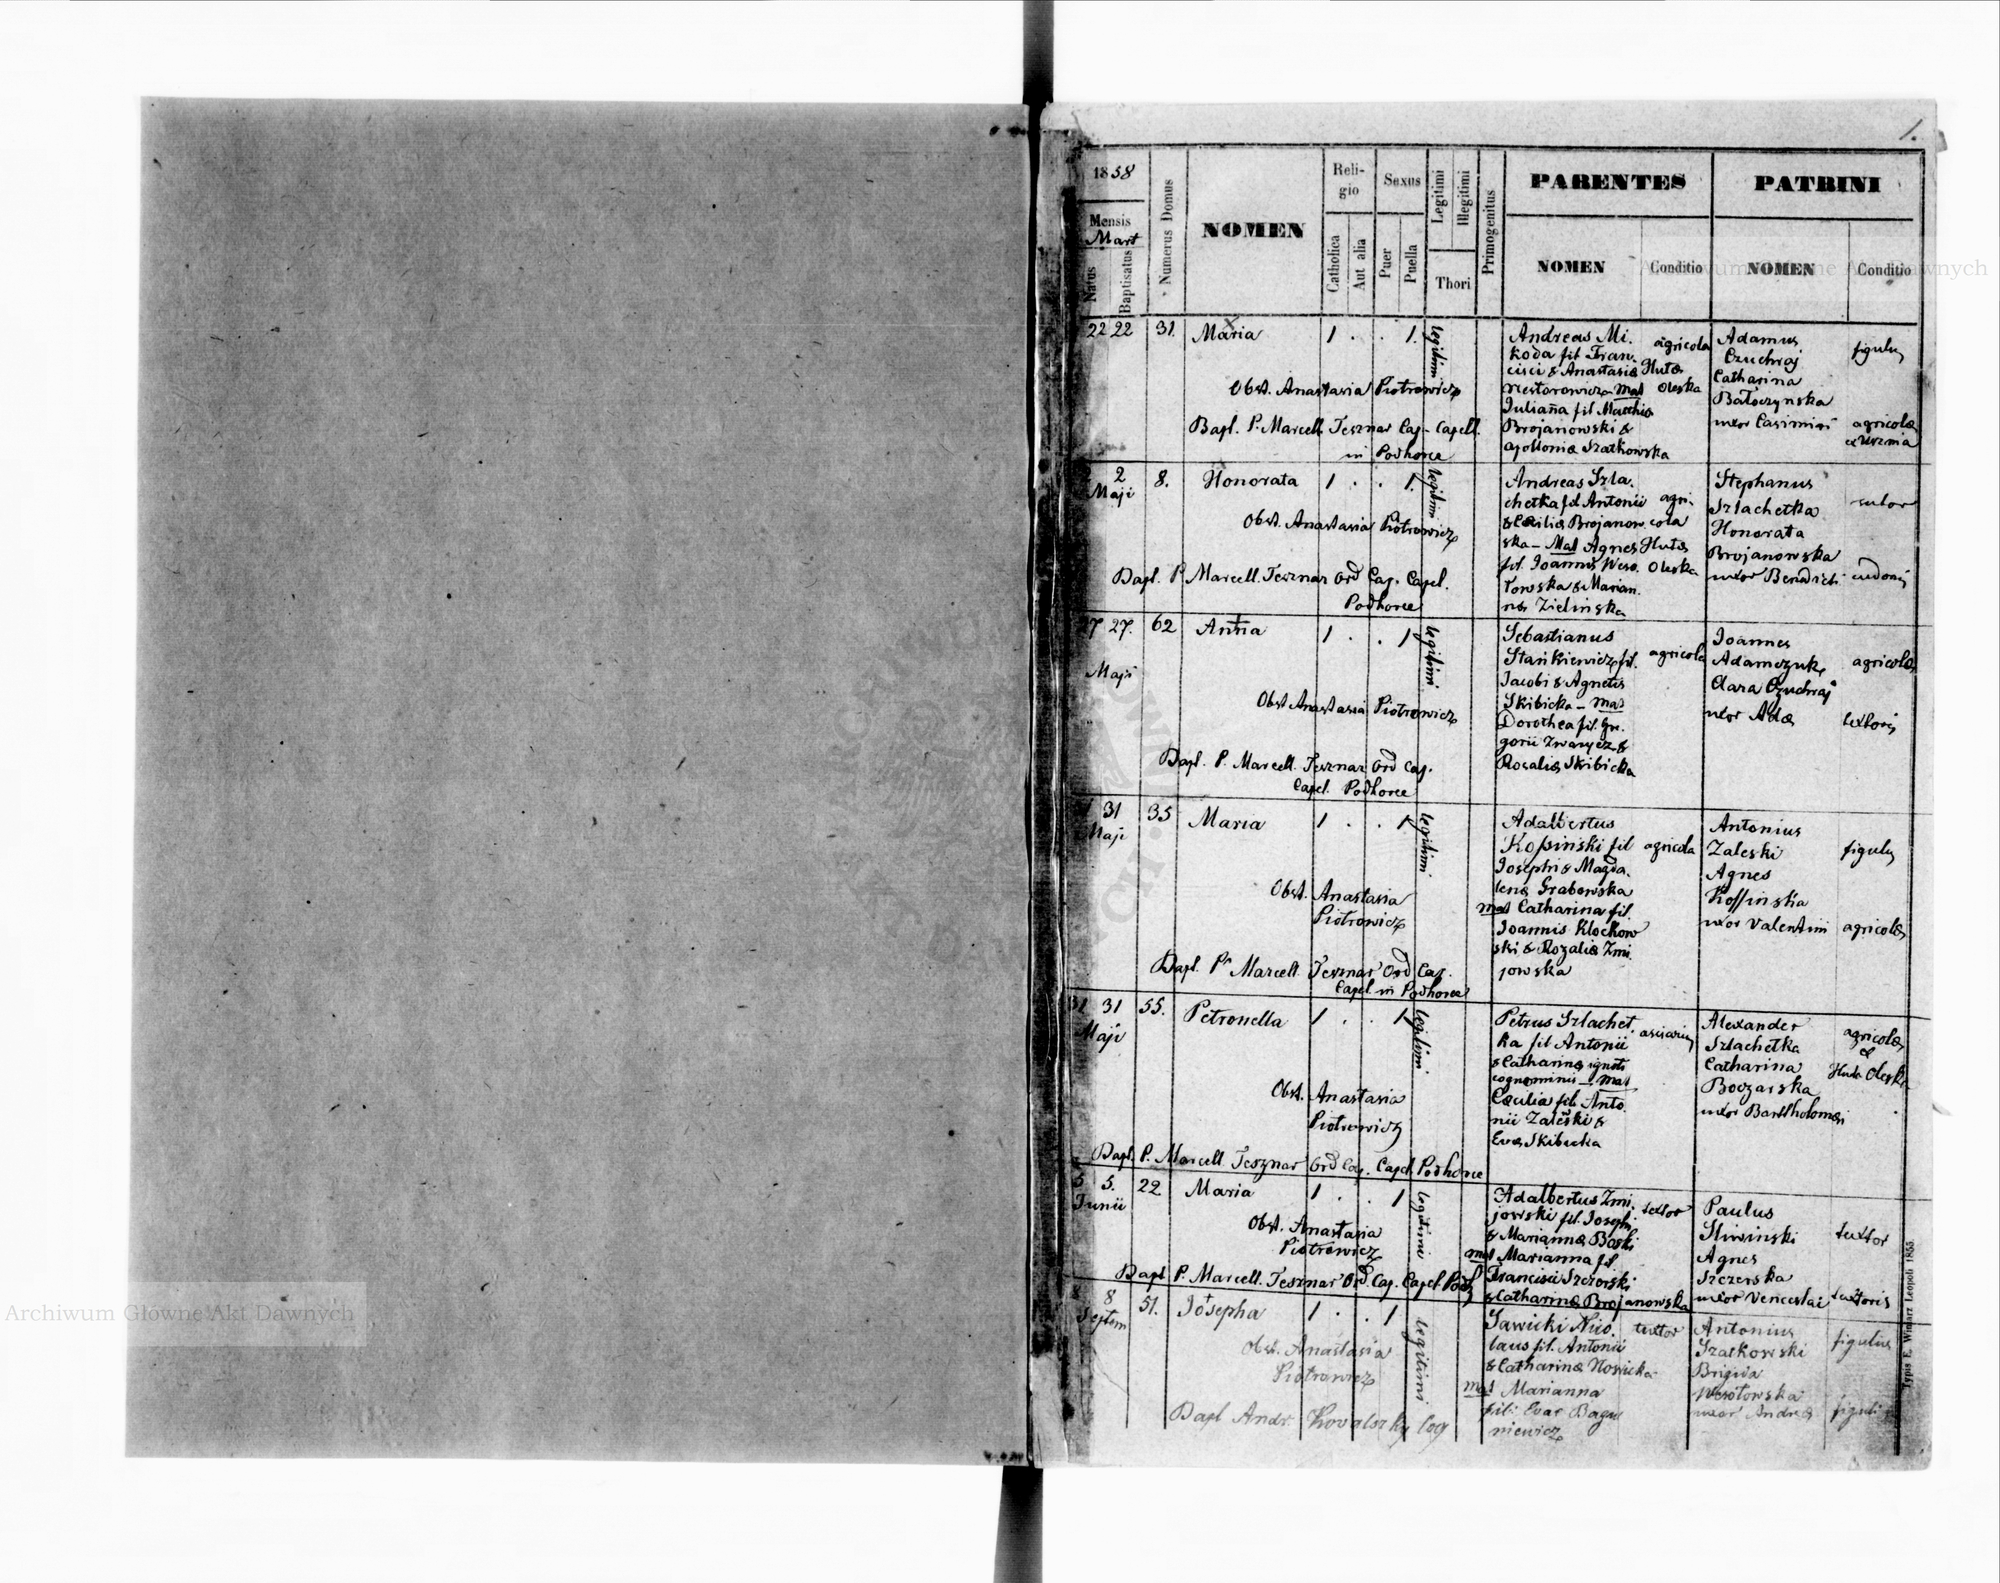 1.
1858
Mensis
Mart
Natus
Baptisatus
Numerus Domus
NOMEN
Reli-
gio
Catholica
Aut alia
Sexus
Puer
Puella
Legitimi
Illegitimi
Thori
Primogenitus
PARENTES
NOMEN
Conditio
PATRINI
NOMEN
Conditio
22 22 31. Maria 1 . . 1. legitimi
Obst. Anastasia Piotrowicz
Bapt. P. Marcell. Tesznar Cap. Capell.
in Podhorce
Andreas Mi-
koda fil Fran-
cisci & Anastasia
Nestorowicz mat
Juliana fil Matthia
Brojanowski &
Apollonia Szatkowska
agricola
Huta
Oleska
Adamus
Czuchraj
Catharina
Batoczynska
uxor Casimiri
figulus
agricola
2 8. Honorata 1 . . 1. legitimi
Maji
Obst. Anastasia Piotrowicz
Bapt. P. Marcell. Tesznar Ord Cap. Capel.
Podhorce
Andreas Szla-
chetka fil Antonii
& Cecilia Brojanow-
ska - Mat Agnes
fil. Joannis Weso-
łowska & Marian-
na Zielinska
agri-
cola
Huta
Oleska
Stephanus
Szlachetka
Honorata
Brojanowska
uxor Benedicti
sutor
27 27. 62 Anna 1 . . 1 legitimi
Maji
Obst Anastasia Piotrowicz
Bapt. P. Marcell. Tesznar Ord Cap.
Capel. Podhorce
Sebastianus
Stankiewicz fil.
Jacobi & Agnetis
Skibicka - mat
Dorothea fil. Gre-
gorii Zwarycz &
Rosalia Skibicka
agricola
Joannes
Adamczuk
Clara Czuchraj
uxor Ada
agricola
textoris
31 35 Maria 1 . . 1 legitimi
Maji
Obst. Anastasia
Piotrowicz
Bapt. Pr Marcell. Tesznar Ord Cap.
Capel. in Podhorce
Adalbertus
Kosinski fil
Josephi & Magda-
lena Grabowska
mat Catharina fil.
Joannis Klockow
ski & Rozalia Zmi
jowska
agricola
Antonius
Zaleski
Agnes
Kossinska
uxor Valentini
figulus
agricola
31 31 55. Petronella 1 . . 1 legitimi
Maji
Obst. Anastasia
Piotrowicz
Bapt. P. Marcell. Tesznar Ord Cap. Capel Podhorce
Petrus Szlachet-
ka fil Antonii
& Catharina ignoti
cognominis - mat
Cæcilia fil. Anto-
nii Zaleski &
Eva Skibicka
Alexander
Szlachetka
Catharina
Boczarska
uxor Bartholomæi
agricola
Huta Oleska
5 5. 22 Maria 1 . . 1 legitimi
Junii
Obst. Anastasia
Piotrowicz
Bapt P. Marcell. Tesznar Ord. Cap. Capel Podh
Adalbertus Zmi-
jowski fil. Josephi
& Marianna Boski
mat Marianna fil.
Francisci Szczorski
& Catharina Brojanowska
textor
Paulus
Sliwinski
Agnes
Szczerska
uxor Venceslai
textor
textoris
8 8 51. Josepha 1 . . 1 legitimi
Septem
Obst. Anastasia
Piotrowicz
Bapt Andr. Kovalszky log
Sawicki Nico-
laus fil. Antonii
& Catharina Nowicka
mat Marianna
fil: Evae Bagu
niewicz
textor
Antonius
Szatkowski
Brigida
Wesołowska
uxor Andrea
figulus
figuli
Typis E. Winiarz Leopoli 1855.
Archiwum Główne Akt Dawnych
Archiwum Główne Akt Dawnych